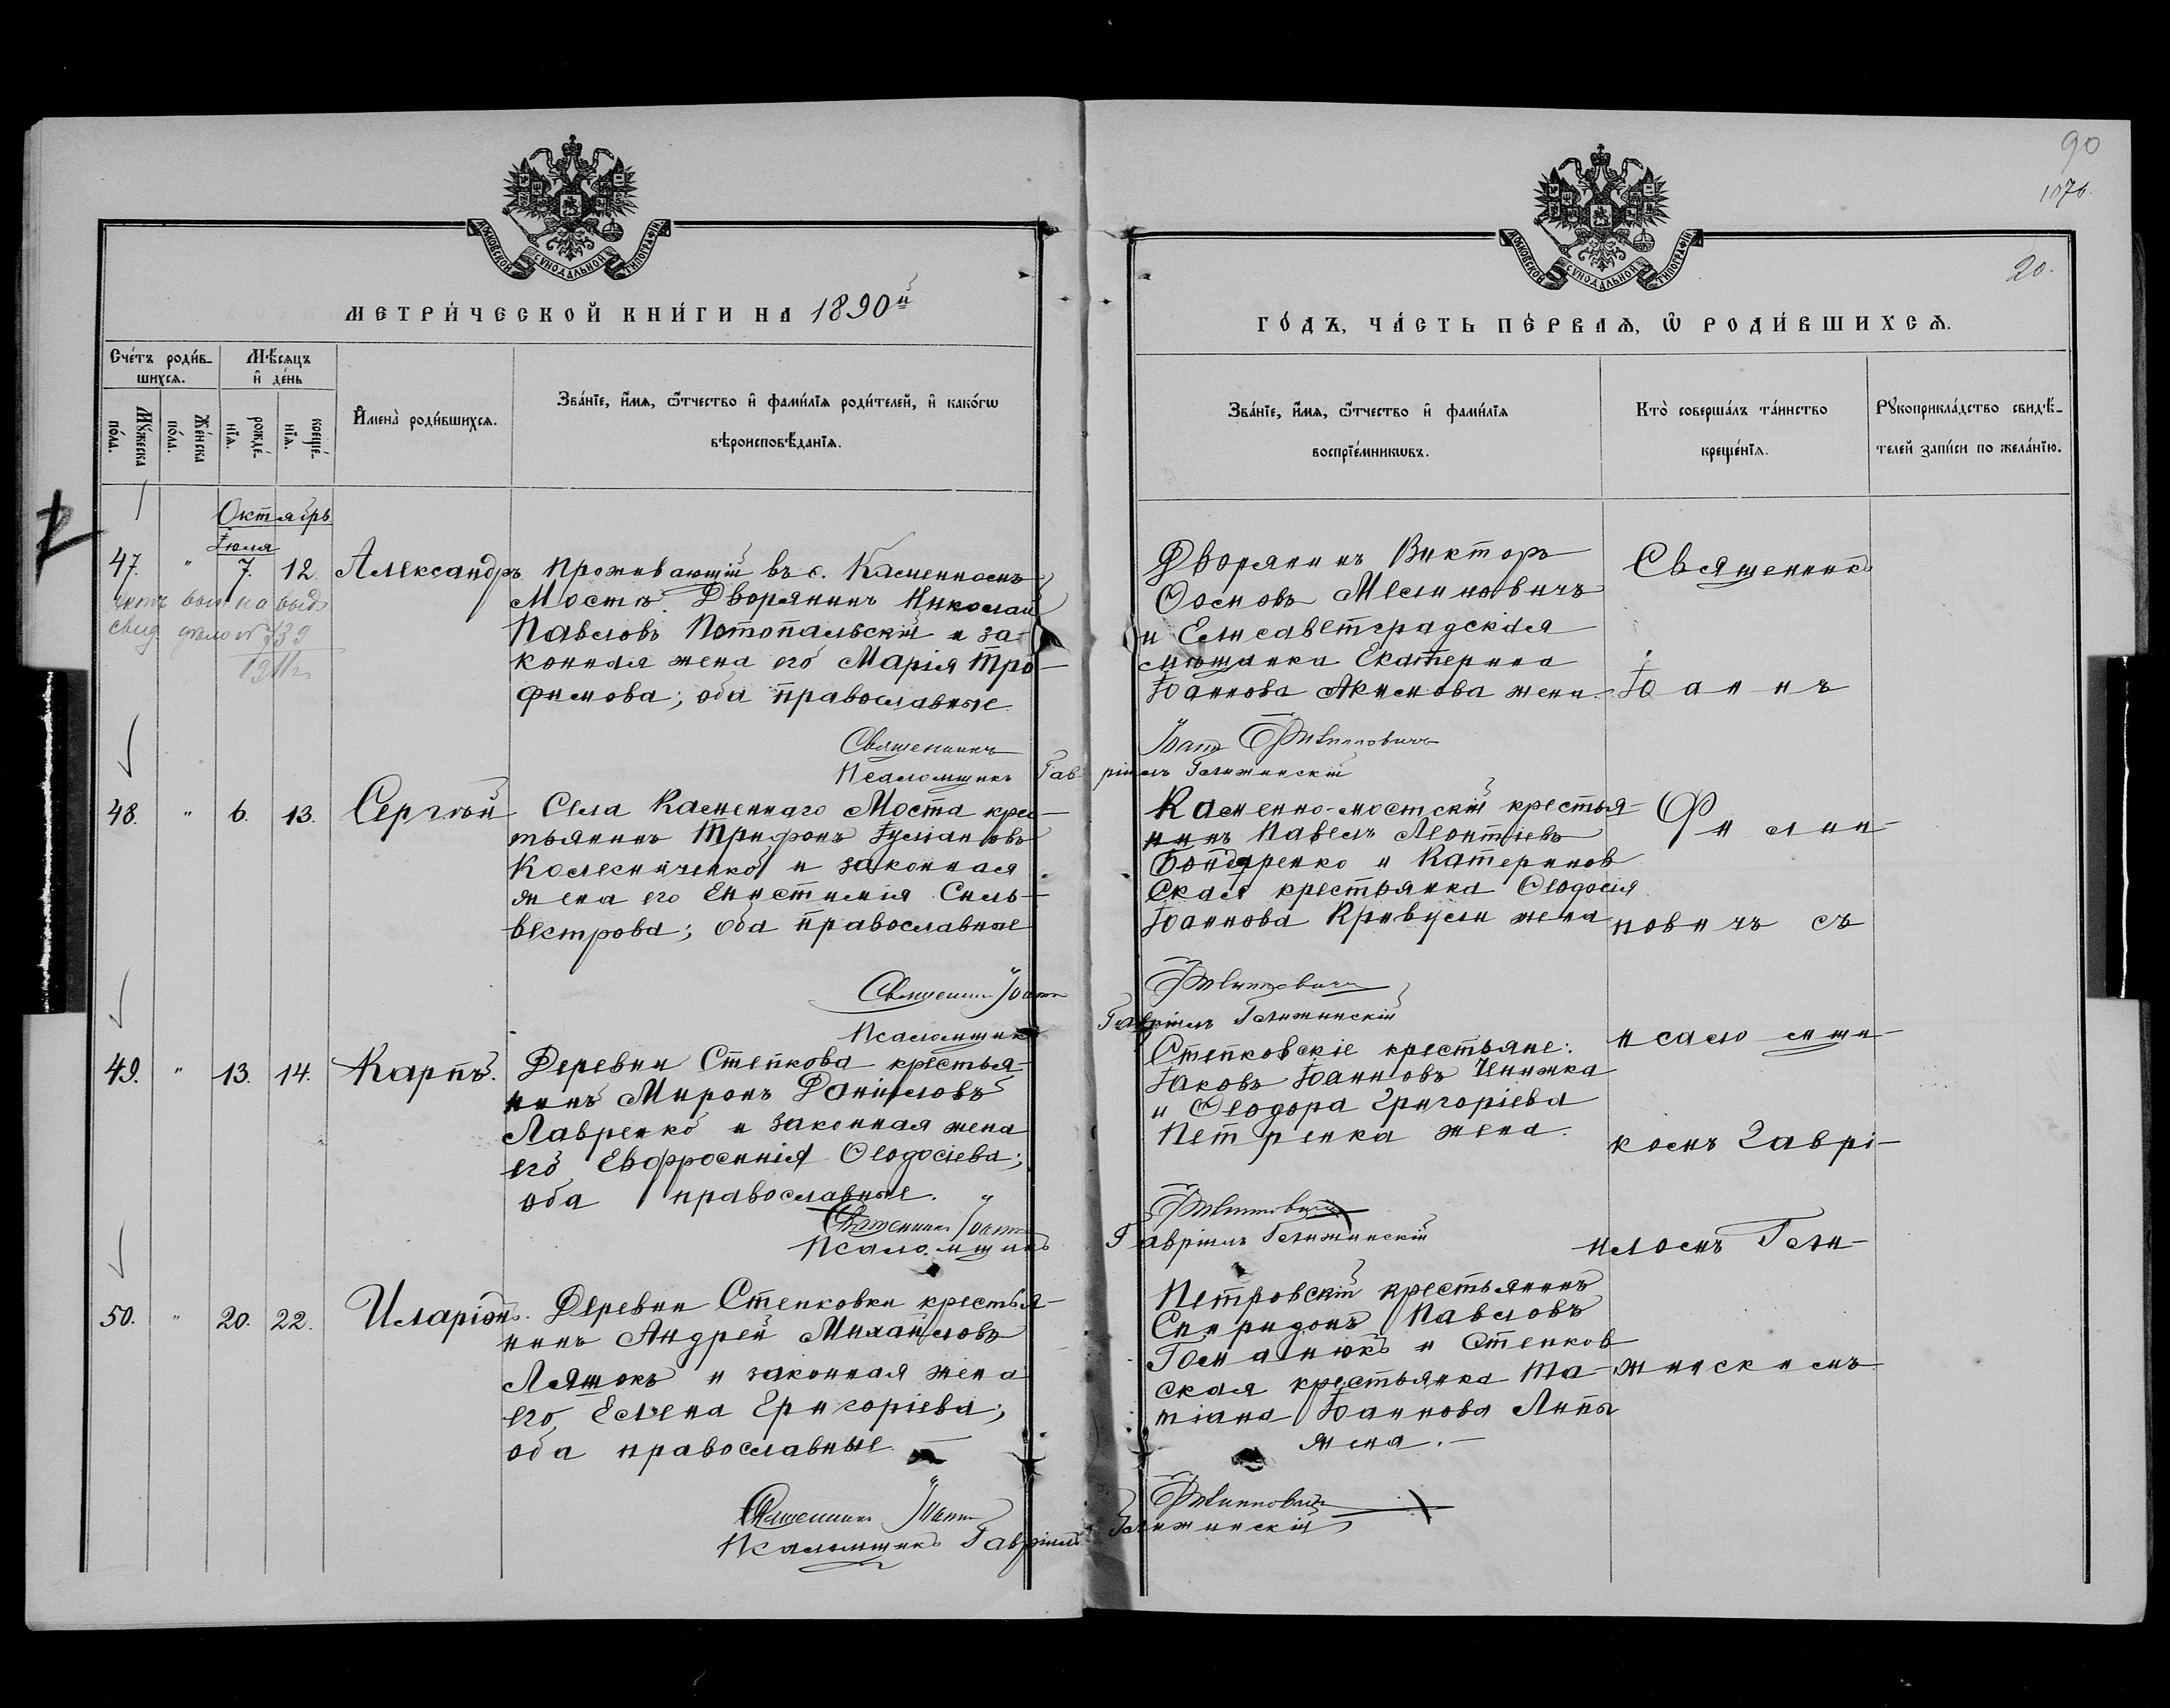 90
107б.
20.
МОСКОВСКОЙ СѴНОДАЛЬНОЙ ТИПОГРАФІИ
МОСКОВСКОЙ СѴНОДАЛЬНОЙ ТИПОГРАФІИ
МЕТРИ́ЧЕСКОЙ КНИ́ГИ НА 1890й
ГО́ДЪ, ЧА́СТЬ ПЕ́РВАѦ, Ѡ РОДИ́ВШИХСѦ.
Сче́тъ роди́в-
шихсѧ.
Мѣ́сѧцъ
и҆ де́нь
Мꙋ́жеска
по́ла.
Же́нска
по́ла.
рожде́-
нїѧ.
креще́-
нїѧ.
И҆мена̀ роди́вшихсѧ.
Зва́нїе, и҆́мѧ, ѻ҆́тчество и҆ фами́лїѧ роди́телей, и҆ како́гѡ
вѣроисповѣ́данїѧ.
Зва́нїе, и҆́мѧ, ѻ҆́тчество и҆ фами́лїѧ
воспрїе́мникѡвъ.
Кто̀ соверша́лъ та́инство
креще́нїѧ.
Рꙋкоприкла́дство свидѣ́-
телей за́писи по жела́нїю.
Октябрь
Іюля
47. " 7. 12. Александръ
Проживающій въ с. Каменномъ
Мостѣ. Дворянинъ Николай
Павловъ Потопальскій и за-
конная жена его Марія Тро-
фимова; оба православные
выд
свид. дѣло № 739
1911г.
Дворянинъ Викторъ
Осиповъ Месиновичъ
и Елисаветградская
мѣщанка Екатерина
Іоаннова Акимова жена
Священникъ Іоаннъ Филипповичъ
Псаломщикъ Гавріилъ Гельжинскій
48. " 6. 13. Сергѣй
Села Каменнаго Моста крес-
тьянинъ Трифонъ Іуліановъ
Колесниченко и законная
жена его Епистимія Силь-
вестрова; оба православные
Каменно-мостскій крестья-
нинъ Павелъ Леонтіевъ
Бондаренко и Катеринов
ская крестьянка Ѳеодосія
Іоаннова Кривули жена
Священникъ Іоаннъ Филипповичъ
Псаломщикъ Гавріилъ Гельжинскій
49. " 13. 14. Карпъ.
Деревни Степкова крестья-
нинъ Миронъ Даніиловъ
Лавренко и законная жена
его Евфросинія Ѳеодосіева;
оба православные.
Степковскіе крестьяне:
Іаковъ Іоанновъ Чижка
и Ѳеодора Григоріева
Петренка жена.
Священникъ Іоаннъ Филипповичъ
Псаломщикъ Гавріилъ Гельжинскій
50. " 20. 22. Иларіонъ.
Деревни Степковки крестья-
нинъ Андрей Михайловъ
Ляшокъ и законная жена
его Елена Григоріева;
оба православные.
Петровскій крестьянинъ
Спиридонъ Павловъ
Гоманюкъ и Степков
ская крестьянка Та-
тіана Іоаннова Липы
жена.
Священникъ Іоаннъ Филипповичъ
Псаломщикъ Гавріилъ Гельжинскій
Священникъ
Іоаннъ
Филип-
повичъ съ
псаломщи-
комъ Гаврі-
иломъ Гель-
жинскимъ